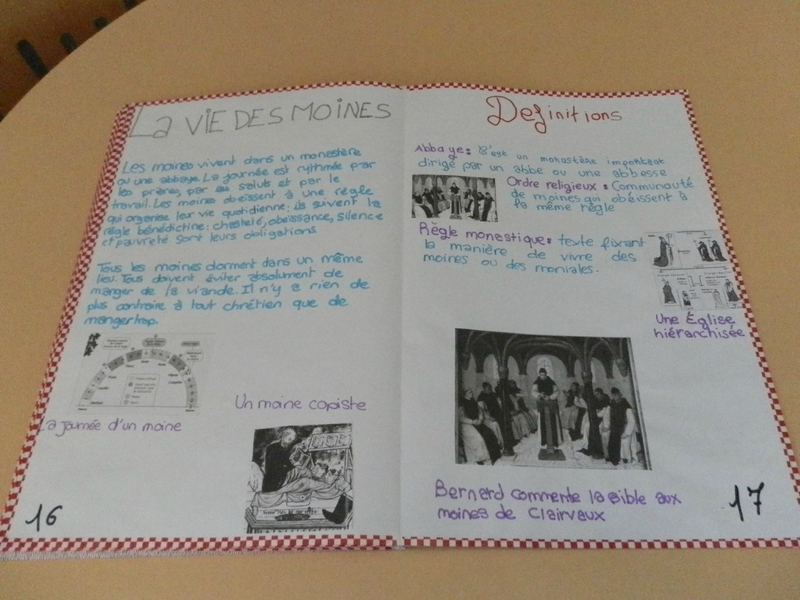 La VIE DES MOINES
Les moines vivent dans un monastère
ou une abbaye. La journée est rythmée par
les prières, par au saluts et par le
travail. Les moines obeissent à une règle
qui organise leur vie quotidienne: ils suivent la
règle bénédictine: chasteté, obeissance, silence
et pauvreté sont leurs obligations
Tous les moines dorment dans un même
lieu. Tous doivent éviter absolument de
manger de la viande. Il n'y a rien de
plus contraire à tout chrétien que de
manger trop.
La journée d'un moine
Un moine copiste
16
Definitions
Abbaye: C'est un monastère important
dirigé par un abbe ou une abbesse
Ordre religieux: Communauté
de moines qui obéissent à
la même règle
Règle monastique: texte fixant
la manière de vivre des
moines ou des moniales.
Une Église
hiérarchisée
Bernard commente la Bible aux
moines de Clairvaux
17